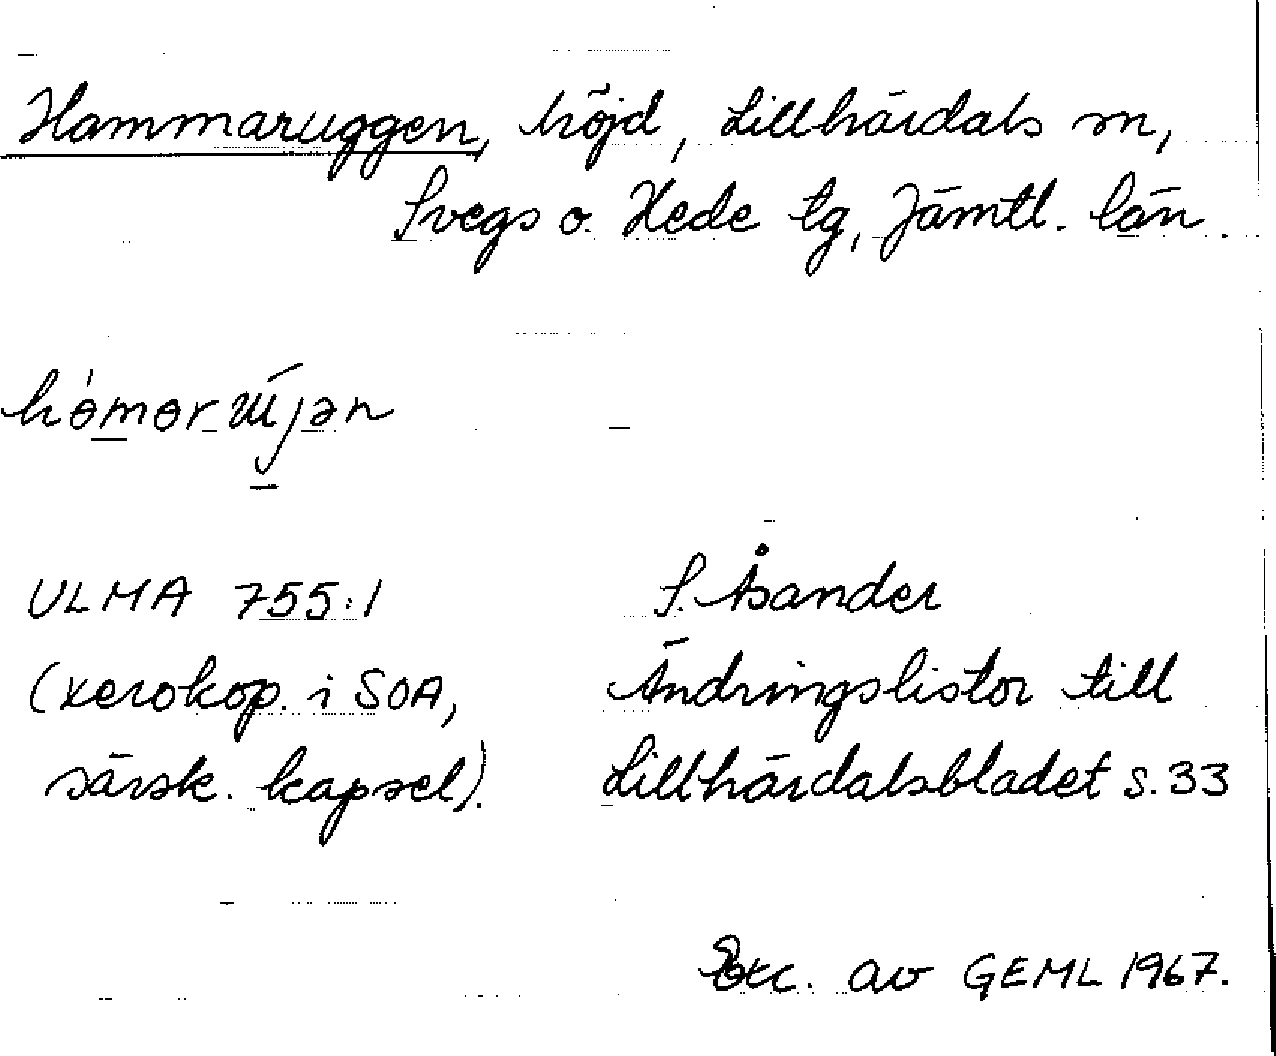 Hammaruggen, höjd, Lillhärdals sn,
Svegs o. Hede tg, Jämtl. län.
ULMA 755:1
S. Åsander
(xerokop. i SOA,
Ändringslistor till
särsk. kapsel).
Lillhärdalsbladet s. 33
Exc. av GEML 1967.